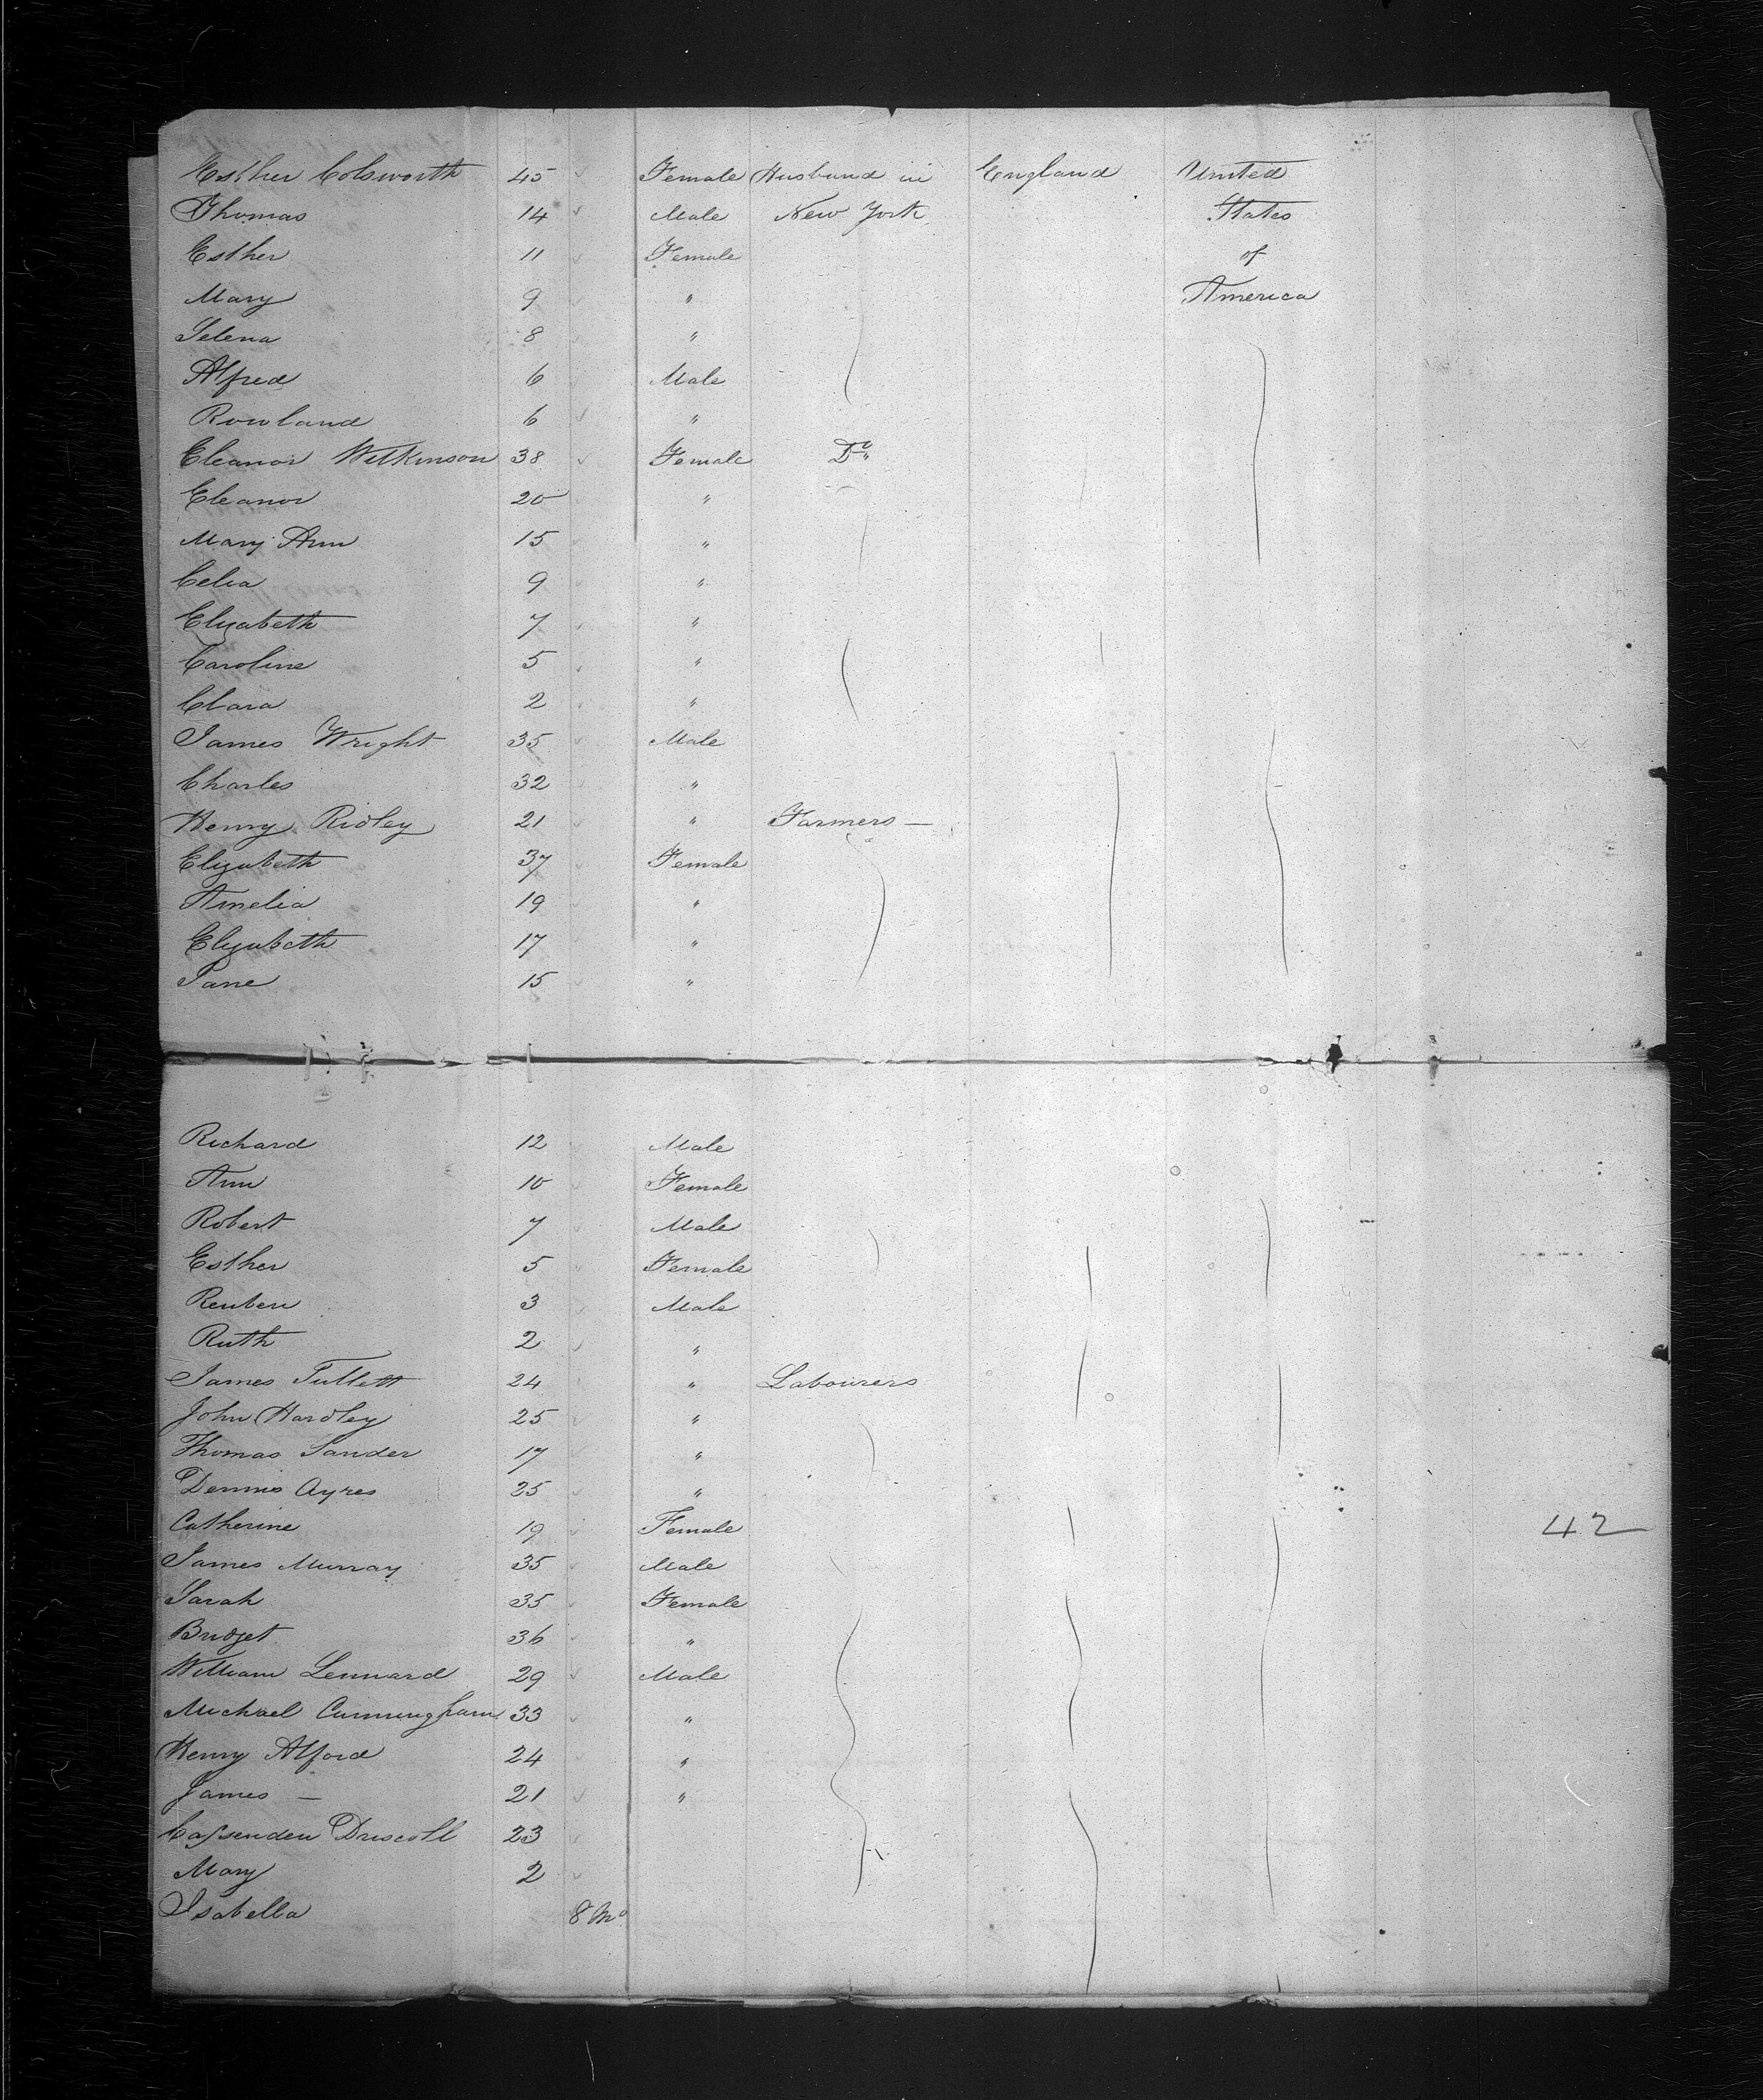 Esther Colsworth 45 Female Husband in England United
Thomas 14 Male New York States
Esther 11 Female of
Mary 9 " America
Selena 8 "
Alfred 6 Male
Rowland 6 "
Eleanor Wilkinson 38 Female Do
Eleanor 20 "
Mary Ann 15 "
Celia 9 "
Elizabeth 7 "
Caroline 5 "
Clara 2 "
James Wright 35 Male
Charles 32 "
Henry Ridley 21 " Farmers —
Elizabeth 37 Female
Amelia 19 "
Elizabeth 17 "
Jane 15 "
Richard 12 Male
Ann 10 Female
Robert 7 Male
Esther 5 Female
Reuben 3 Male
Ruth 2 "
James Tullett 24 " Labourers
John Hardley 25 "
Thomas Sander 17 "
Dennis Ayres 25 "
Catherine 19 Female 42
James Murray 35 Male
Sarah 35 Female
Bridget 36 "
William Lennard 29 Male
Michael Cunningham 33 "
Henry Alford 24 "
James — 21 "
Driscoll 23
Mary 2
Isabella 8 Mo